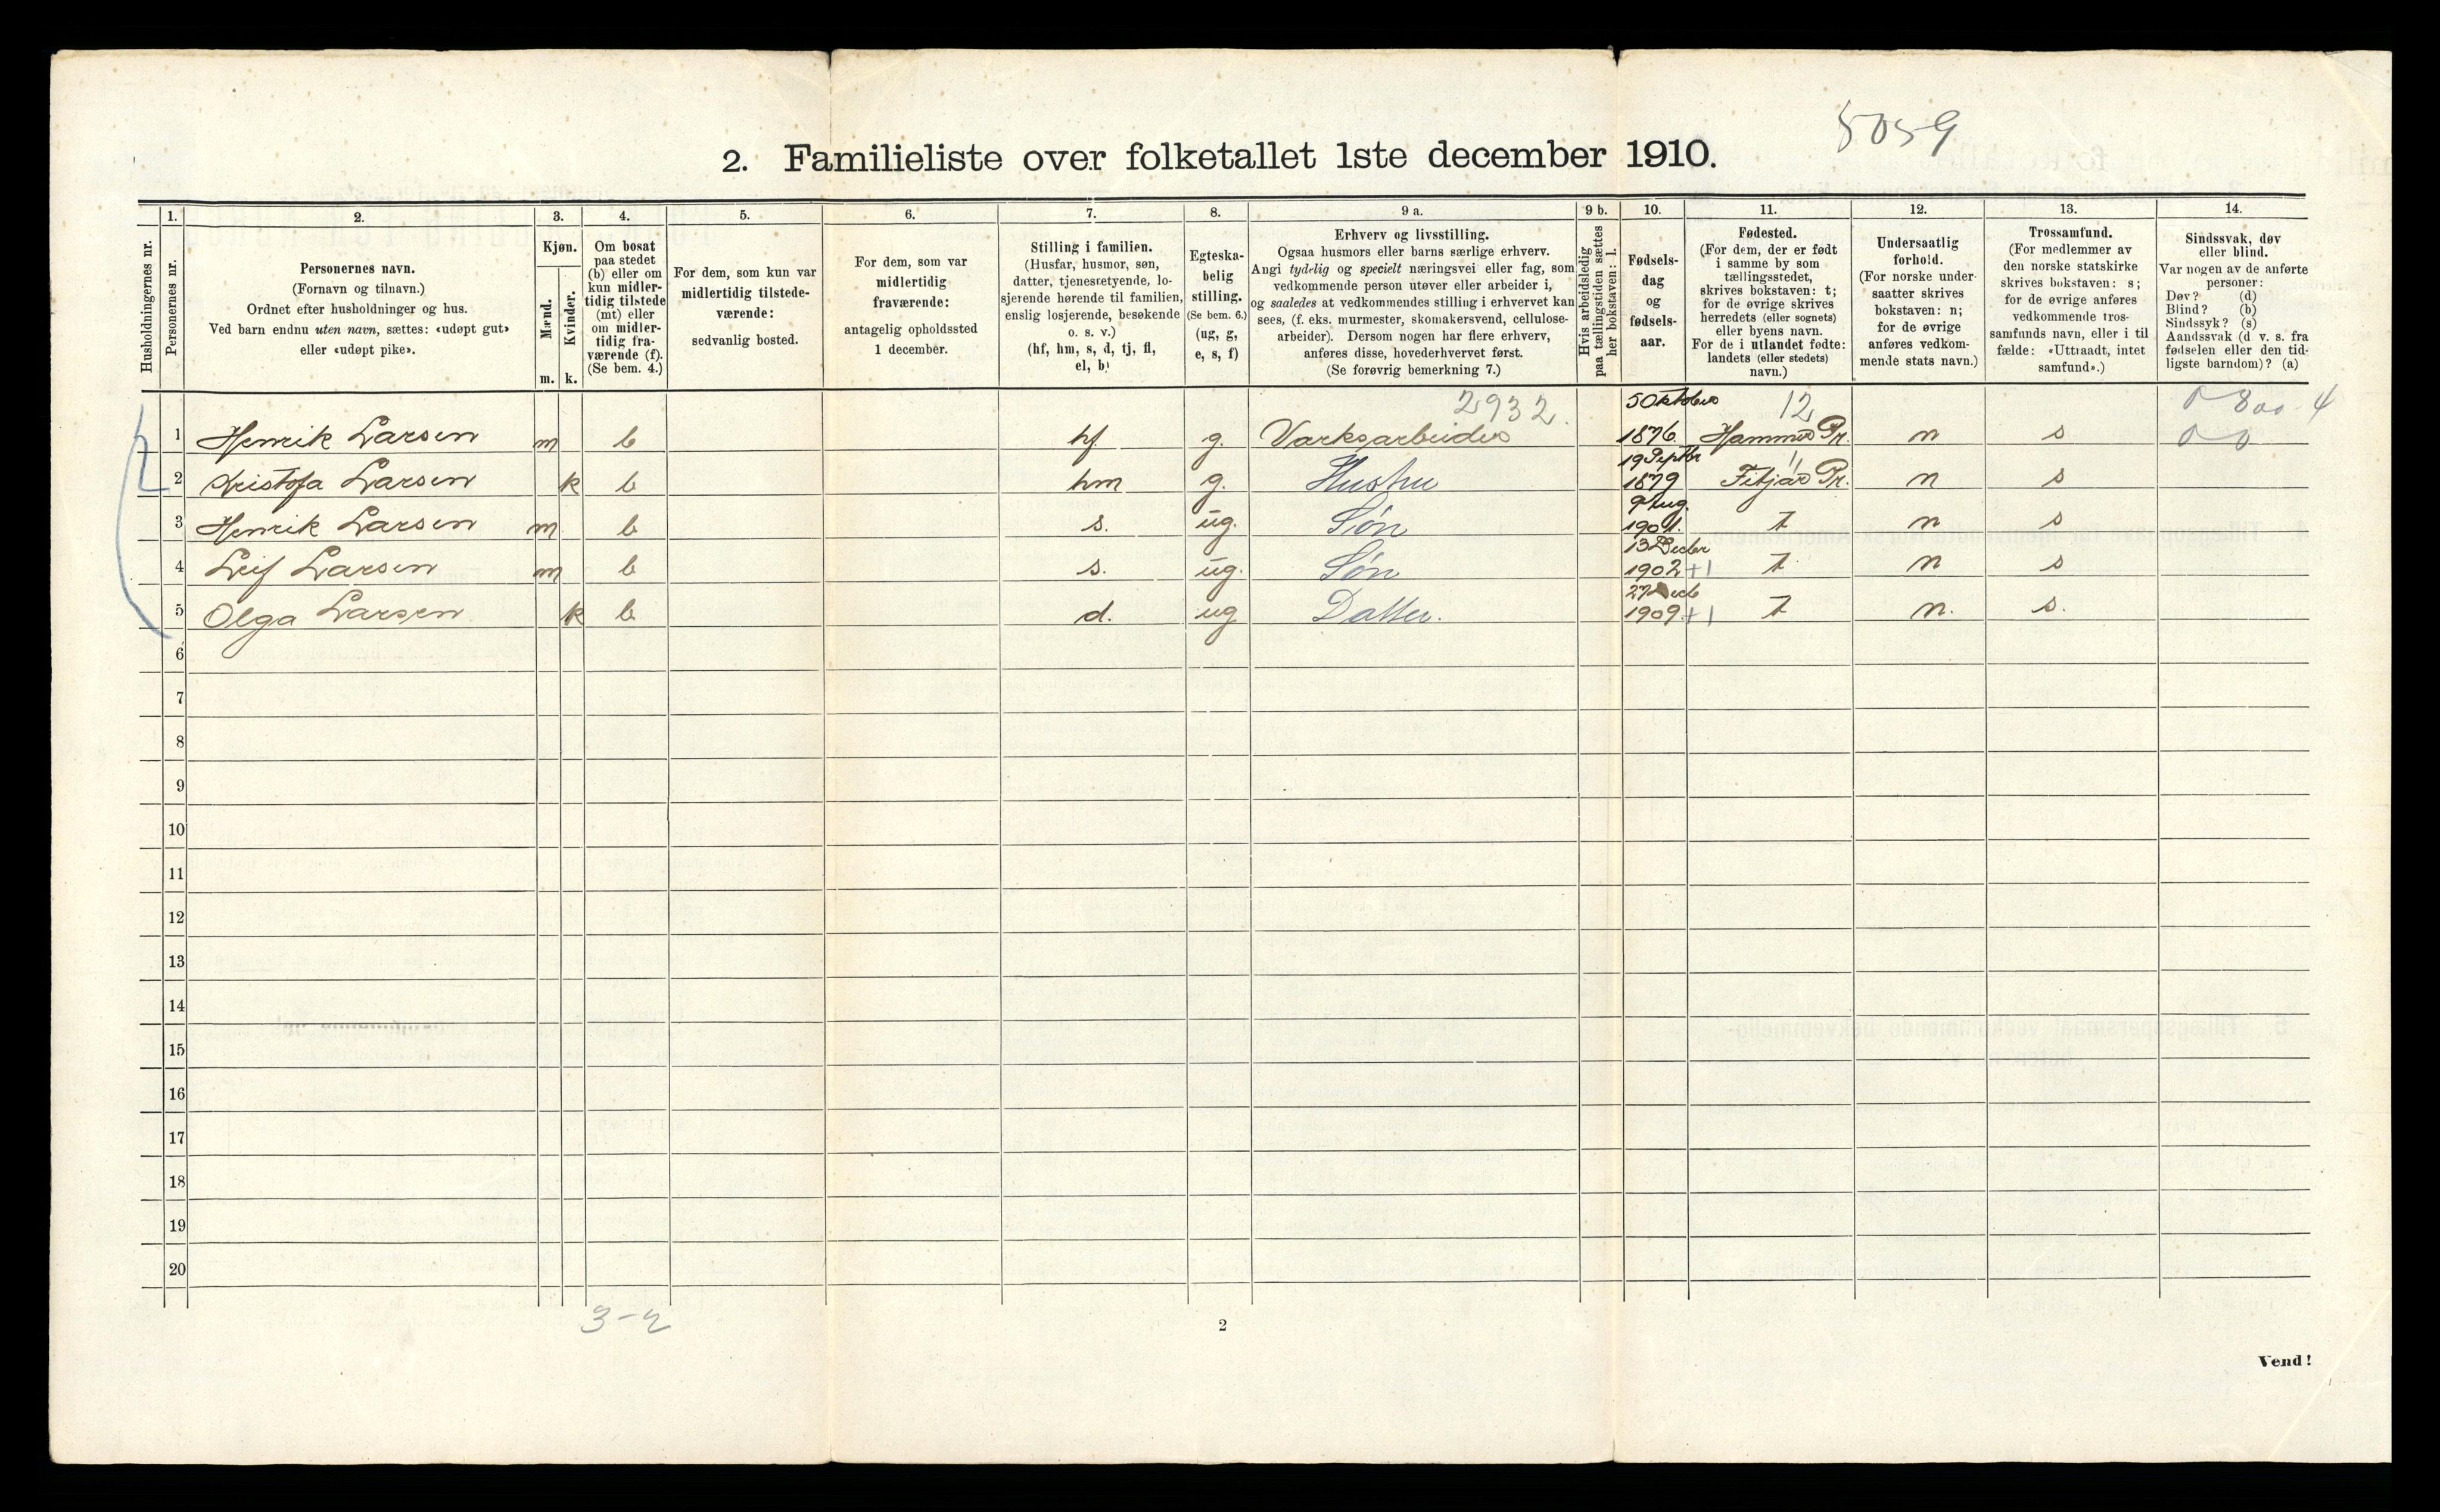 5059
2. Familieliste over folketallet 1ste december 1910.
Husholdningernes nr.
1.
Personernes nr.
2.
Personernes navn.
(Fornavn og tilnavn.)
Ordnet efter husholdninger og hus.
Ved barn endnu uten navn, sættes: «udøpt gut»
eller «udøpt pike».
3.
Kjøn.
Mænd.
m.
Kvinder.
k.
4.
Om bosat
paa stedet
(b) eller om
kun midler-
tidig tilstede
(mt) eller
om midler-
tidig fra-
værende (f).
(Se bem. 4.)
5.
For dem, som kun var
midlertidig tilstede-
værende:
sedvanlig bosted.
6.
For dem, som var
midlertidig
fraværende:
antagelig opholdssted
1 december.
7.
Stilling i familien.
(Husfar, husmor, søn,
datter, tjenestetyende, lo-
sjerende hørende til familien,
enslig losjerende, besøkende
o. s. v.)
(hf, hm, s, d, tj, fl,
el, b)
8.
Egteska-
belig
stilling.
(Se bem. 6.)
(ug, g,
e, s, f)
9 a.
Erhverv og livsstilling.
Ogsaa husmors eller barns særlige erhverv.
Angi tydelig og specielt næringsvei eller fag, som
vedkommende person utøver eller arbeider i,
og saaledes at vedkommendes stilling i erhvervet kan
sees, (f. eks. murmester, skomakersvend, cellulose-
arbeider). Dersom nogen har flere erhverv,
anføres disse, hovederhvervet først.
(Se forøvrig bemerkning 7.)
9 b.
Hvis arbeidsledig
paa tællingstiden sættes
her bokstaven: l.
10.
Fødsels-
dag
og
fødsels-
aar.
11.
Fødested.
(For dem, der er født
i samme by som
tællingsstedet,
skrives bokstaven: t;
for de øvrige skrives
herredets (eller sognets)
eller byens navn.
For de i utlandet fødte:
landets (eller stedets)
navn.)
12.
Undersaatlig
forhold.
(For norske under-
saatter skrives
bokstaven: n;
for de øvrige
anføres vedkom-
mende stats navn.)
13.
Trossamfund.
(For medlemmer av
den norske statskirke
skrives bokstaven: s;
for de øvrige anføres
vedkommende tros-
samfunds navn, eller i til
fælde: «Uttraadt, intet
samfund».)
14.
Sindssvak, døv
eller blind.
Var nogen av de anførte
personer:
Døv? (d)
Blind? (b)
Sindssyk? (s)
Aandssvak (d v. s. fra
fødselen eller den tid-
ligste barndom)? (a)
2932. 5 Oktober 12 800 4
1 Henrik Larsen m b hf g. Varksarbeider 1876. Hammer Pr. n s 0 0
19 Septbr 11
2 Kristofa Larsen k b hm g. Hustru 1879 Fitjar Pr. n s
9 Aug.
3 Henrik Larsen m b s. ug. Søn 1901. t n s
13 Decbr
4 Leif Larsen m b s. ug. Søn 1902 +1 t n s
27 Decb
5 Olga Larsen k b d. ug Datter. 1909 +1 t n. s.
6
7
8
9
10
11
12
13
14
15
16
17
18
19
20
3-2
2
Vend!